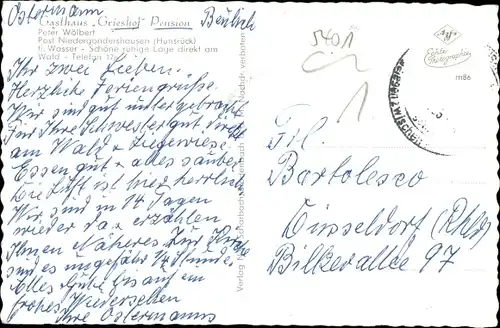 Ostermann
Gasthaus "Grieshof" Pension
Peter Wölbert
Post Niedergondershausen (Hunsrück)
fl. Wasser - Schöne ruhige Lage direkt am
Wald - Telefon
Ihr zwei Lieben.
Herzliche Feriengrüße.
Wir sind gut untergebracht
Für Ihre Schwester gut direkt
am Wald + Liegewiese
Essen gut + alles sauber
Die Luft ist hier herrlich
Wir sind in 14 Tagen
wieder da + erzählen
Ihnen Näheres Zur Kirche
sind es ungefähr Stunde.
Alles Gute bis auf ein
frohes Wiedersehen
Ihre Ostermanns
Nachdr. verboten
5401
1
Echte Photographie
m86
Frl.
Bartolesco
Düsseldorf (Rhld)
Bilkerallee 97